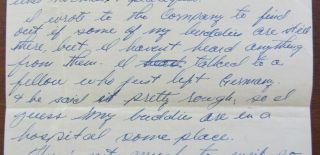 I wrote to the Company to find
out if some of my buddies are still
there, but I haven't heard anything
from them. I talked to a
fellow who just left Germany
& he said it pretty rough, so I
guess my buddies are in a
hospital some place.